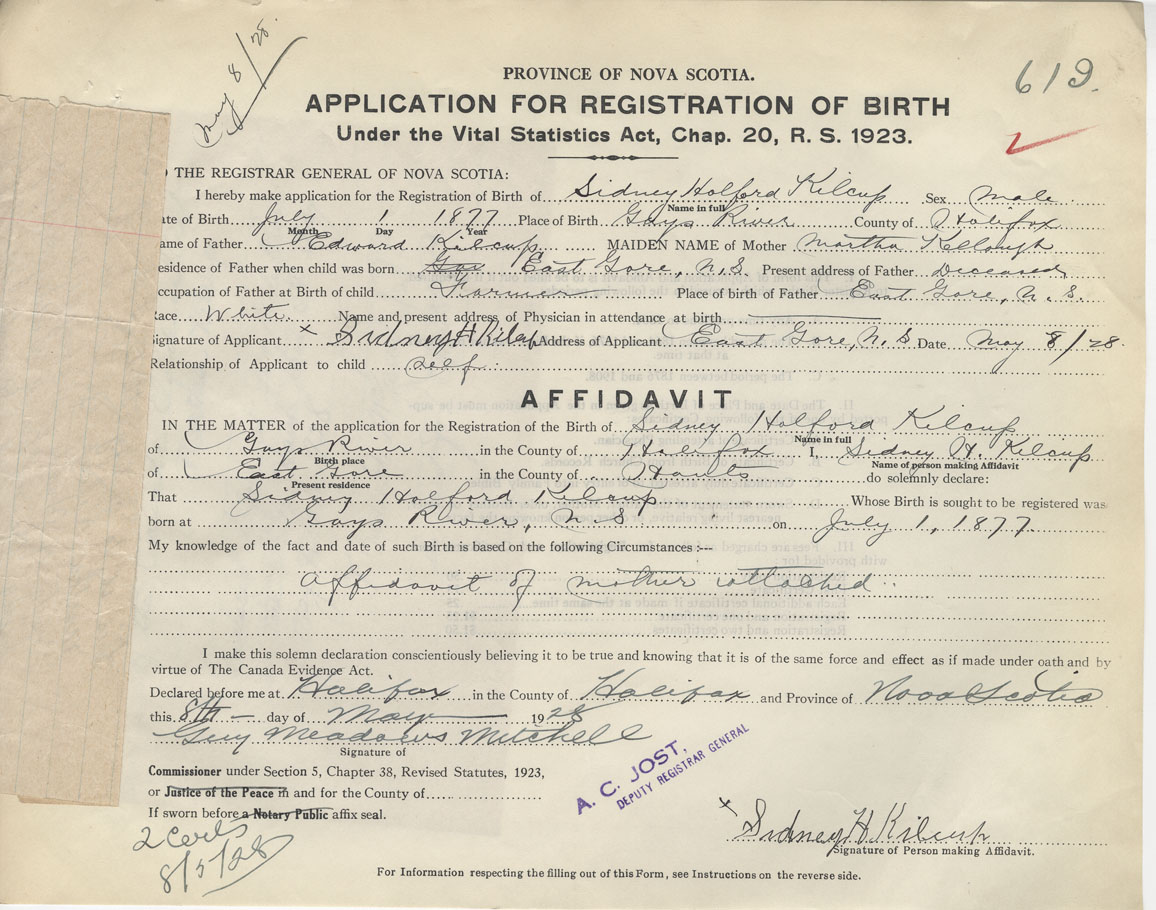 May 8/28.
619.
PROVINCE OF NOVA SCOTIA.
APPLICATION FOR REGISTRATION OF BIRTH
Under the Vital Statistics Act, Chap. 20, R. S. 1923.
THE REGISTRAR GENERAL OF NOVA SCOTIA:
I hereby make application for the Registration of Birth of Sidney Holford Kilcup Sex Male
Name in full
ate of Birth July 1 1877 Place of Birth Gays River County of Halifax
Month Day Year
ame of Father Edward Kilcup MAIDEN NAME of Mother Martha Kellough
esidence of Father when child was born East Gore, N.S. Present address of Father Deceased
ccupation of Father at Birth of child Farmer Place of birth of Father East Gore, N.S.
Race White Name and present address of Physician in attendance at birth
Signature of Applicant x Sidney H Kilcup Address of Applicant East Gore, N.S. Date May 8/28.
Relationship of Applicant to child self.
AFFIDAVIT
IN THE MATTER of the application for the Registration of the Birth of Sidney Holford Kilcup
Name in full
of Gays River in the County of Halifax I, Sidney H. Kilcup
Birth place Name of person making Affidavit
of East Gore in the County of Hants do solemnly declare:
Present residence
That Sidney Holford Kilcup Whose Birth is sought to be registered was
born at Gays River, N.S on July 1, 1877.
My knowledge of the fact and date of such Birth is based on the following Circumstances :—
Affidavit of mother attached
I make this solemn declaration conscientiously believing it to be true and knowing that it is of the same force and effect as if made under oath and by
virtue of The Canada Evidence Act.
Declared before me at Halifax in the County of Halifax and Province of Nova Scotia
this 8th day of May 1928
Guy Meadows Mitchell
Signature of
Commissioner under Section 5, Chapter 38, Revised Statutes, 1923,
or Justice of the Peace in and for the County of
If sworn before a Notary Public affix seal.
A. C. JOST,
DEPUTY REGISTRAR GENERAL
x Sidney H Kilcup
Signature of Person making Affidavit.
2 Certs
8/5/28
For Information respecting the filling out of this Form, see Instructions on the reverse side.